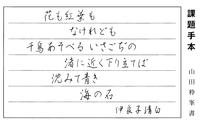 課題手本
山田梓筆書
花も紅葉も
なけれども
千鳥あそべるいさごぢの
渚に近く下り立てば
沈みて青き
海の石
伊良子清白